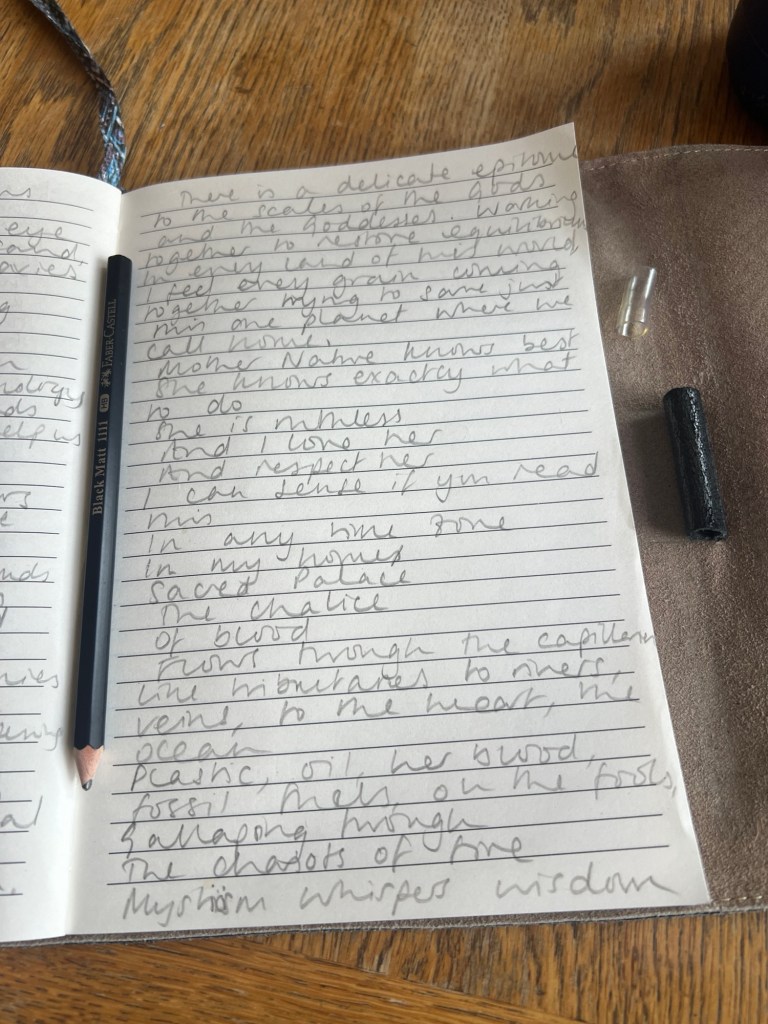 There is a delicate epitome
to the scales of the gods
and the Goddesses. Working
together to restore equilibrium
in every land of this world,
I feel every grain coming
together trying to save just
this one planet where we
call home.
Mother Nature knows best
She knows exactly what
to do
She is ruthless
And I love her
And respect her
I can sense if you read
this
In any time zone
In my homes
Sacred Palace
The chalice
Of blood
Flows through the capillerys
Like tributaries to rivers,
veins, to the heart, the
ocean
Plastic, oil, her blood,
fossil fuels, oh the fools,
Gallaping through
The chariots of time
Mystism whispers wisdom
Black Matt 1111 HB FABER-CASTELL
eye
sand
ovies
nology
ds
elp us
nds
nies
al